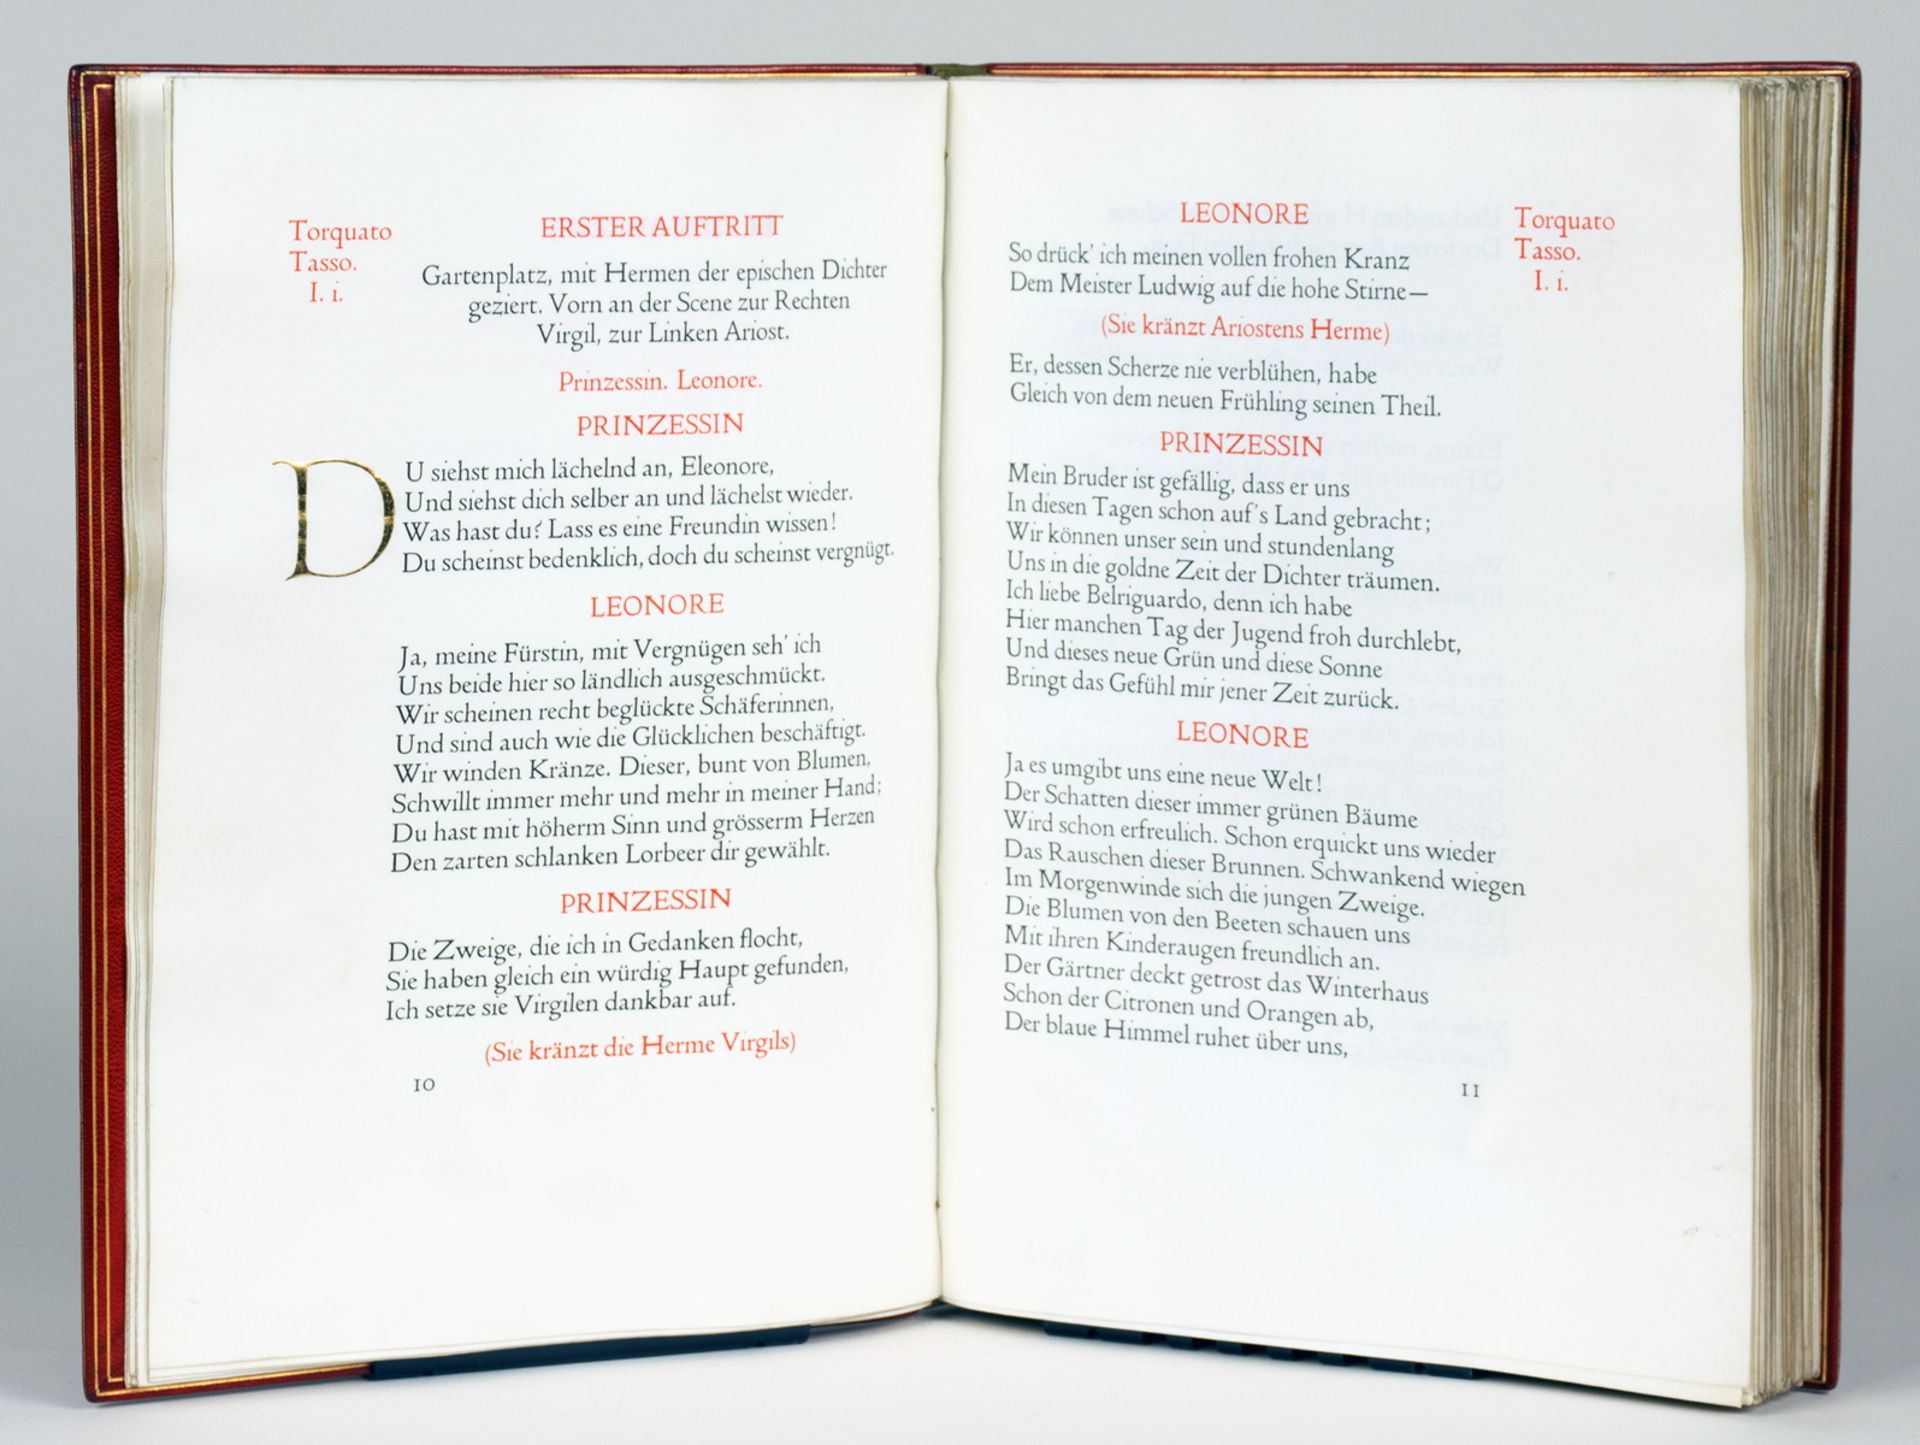 Torquato
Tasso.
I. i.
ERSTER AUFTRITT
Gartenplatz, mit Hermen der epischen Dichter
geziert. Vorn an der Scene zur Rechten
Virgil, zur Linken Ariost.
Prinzessin. Leonore.
PRINZESSIN
DU siehst mich lächelnd an, Eleonore,
Und siehst dich selber an und lächelst wieder.
Was hast du? Lass es eine Freundin wissen!
Du scheinst bedenklich, doch du scheinst vergnügt.
LEONORE
Ja, meine Fürstin, mit Vergnügen seh' ich
Uns beide hier so ländlich ausgeschmückt.
Wir scheinen recht beglückte Schäferinnen,
Und sind auch wie die Glücklichen beschäftigt.
Wir winden Kränze. Dieser, bunt von Blumen,
Schwillt immer mehr und mehr in meiner Hand;
Du hast mit höherm Sinn und grösserm Herzen
Den zarten schlanken Lorbeer dir gewählt.
PRINZESSIN
Die Zweige, die ich in Gedanken flocht,
Sie haben gleich ein würdig Haupt gefunden,
Ich setze sie Virgilen dankbar auf.
(Sie kränzt die Herme Virgils)
10
LEONORE
So drück' ich meinen vollen frohen Kranz
Dem Meister Ludwig auf die hohe Stirne—
(Sie kränzt Ariostens Herme)
Er, dessen Scherze nie verblühen, habe
Gleich von dem neuen Frühling seinen Theil.
PRINZESSIN
Mein Bruder ist gefällig, dass er uns
In diesen Tagen schon auf's Land gebracht;
Wir können unser sein und stundenlang
Uns in die goldne Zeit der Dichter träumen.
Ich liebe Belriguardo, denn ich habe
Hier manchen Tag der Jugend froh durchlebt,
Und dieses neue Grün und diese Sonne
Bringt das Gefühl mir jener Zeit zurück.
LEONORE
Ja es umgibt uns eine neue Welt!
Der Schatten dieser immer grünen Bäume
Wird schon erfreulich. Schon erquickt uns wieder
Das Rauschen dieser Brunnen. Schwankend wiegen
Im Morgenwinde sich die jungen Zweige.
Die Blumen von den Beeten schauen uns
Mit ihren Kinderaugen freundlich an.
Der Gärtner deckt getrost das Winterhaus
Schon der Citronen und Orangen ab,
Der blaue Himmel ruhet über uns,
11
Torquato
Tasso.
I. i.